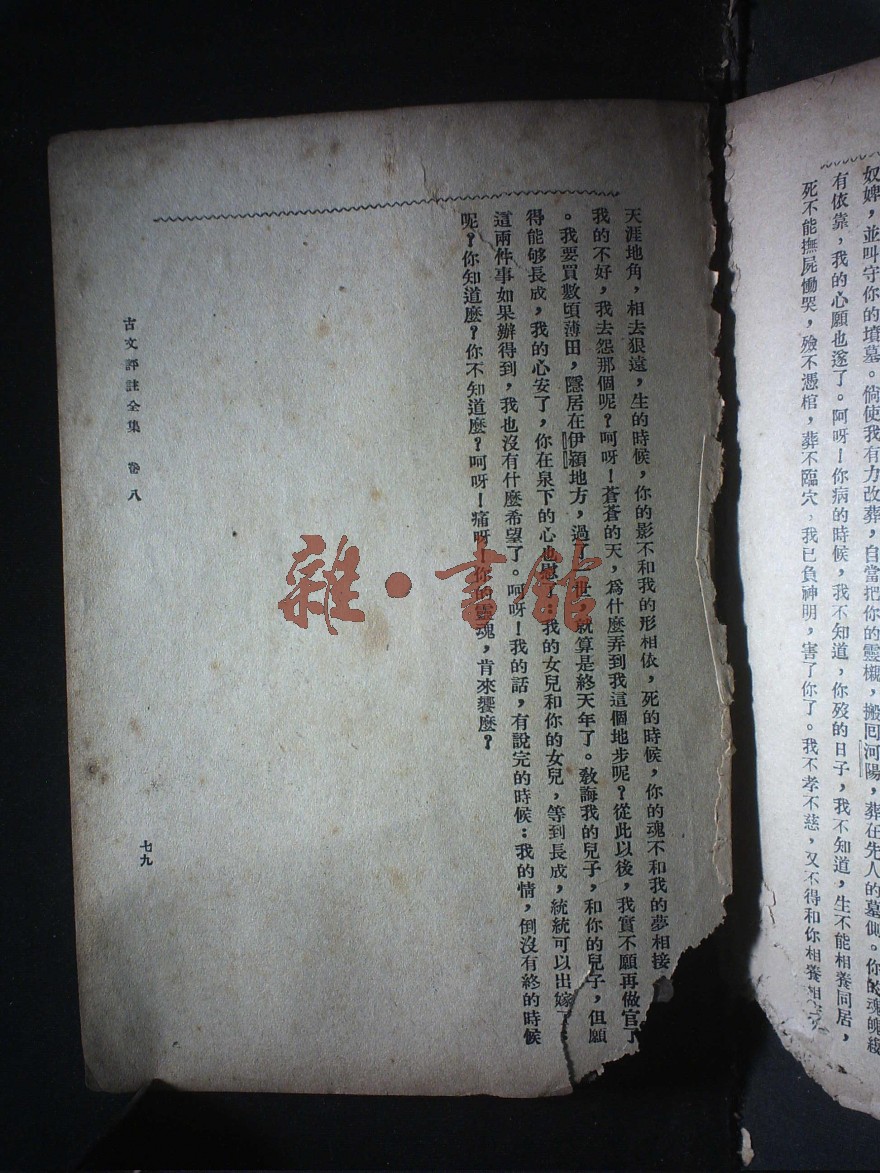 奴婢，並叫守你的墳墓。倘使我有力改葬，自當把你的靈櫬，搬囘河陽，葬在先人的墓側。你的魂魄纔
有依靠，我的心願也遂了。呵呀！你病的時候，我不知道，你歿的日子，我不知道，生不能相養同居，
死不能撫屍慟哭，殮不憑棺，葬不臨穴，我已負神明，害了你了。我不孝不慈，又不得和你相養相
天涯地角，相去狠遠，生的時候，你的影不和我的形相依，死的時候，你的魂不和我的夢相接
我的不好，我去怨那個呢？呵呀！蒼蒼的天，爲什麽弄到我這個地步呢？從此以後，我實不願再做官了
。我要買數頃薄田，隱居在伊潁地方，過了一世，就算是終天年了。敎誨我的兒子，和你的兒子，但願
得能够長成，我的心安了，你在泉下的心也慰了：我的女兒和你的女兒，等到長成，統統可以出嫁了
這兩件事如果辦得到，我也沒有什麽希望了。呵呀！我的話，有說完的時候：我的情，倒沒有終的時候
呢？你知道麽？你不知道麽？呵呀！痛呀！你的靈魂，肯來饗麽？
古文評註全集 卷八
七九
雜·書館